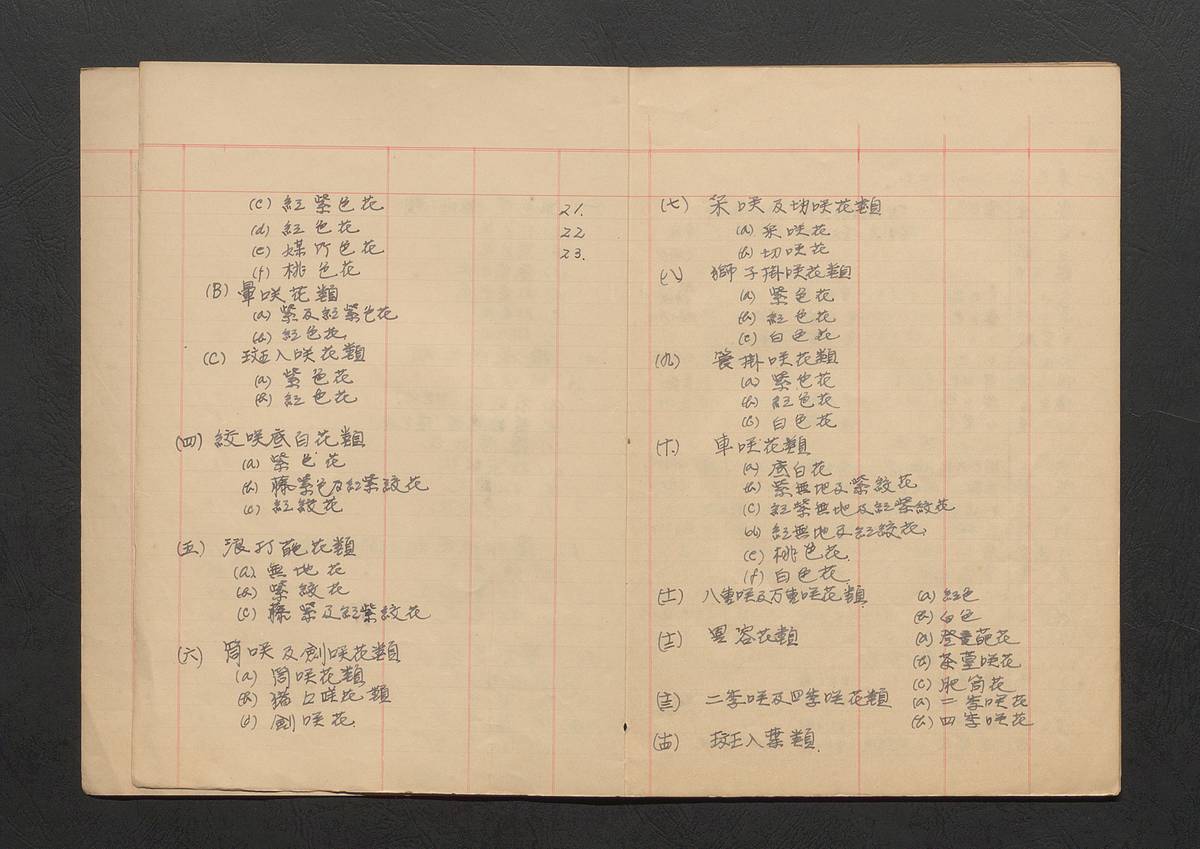 (c) 紅紫色花 21.
(d) 紅色花 22
(e) 媒竹色花 23.
(f) 桃色花
(B) 暈咲花類
(a) 紫及紅紫色花
(b) 紅色花
(C) 斑入咲花類
(a) 紫色花
(b) 紅色花
(四) 絞咲底白花類
(a) 紫色花
(b) 藤紫色及紅紫絞花
(c) 紅絞花
(五) 浪打葩花類
(a) 無地花
(b) 紫絞花
(c) 藤紫及紅紫絞花
(六) 筒咲及劍咲花類
(a) 筒咲花類
(b) 猪口咲花類
(c) 劍咲花
(七) 采咲及切咲花類
(a) 采咲花
(b) 切咲花
(八) 獅子掛咲花類
(a) 紫色花
(b) 紅色花
(c) 白色花
(九) 管掛咲花類
(a) 紫色花
(b) 紅色花
(c) 白色花
(十) 車咲花類
(a) 底白花
(b) 紫無地及紫絞花
(c) 紅紫無地及紅紫絞花
(d) 紅無地及紅絞花
(e) 桃色花
(f) 白色花
(十一) 八重咲及万重咲花類 (a) 紅色
(b) 白色
(十二) 異容花類 (a) 疊葩花
(b) 茶薹咲花
(c) 肥筒花
(十三) 二季咲及四季咲花類 (a) 二季咲花
(b) 四季咲花
(十四) 斑入葉類